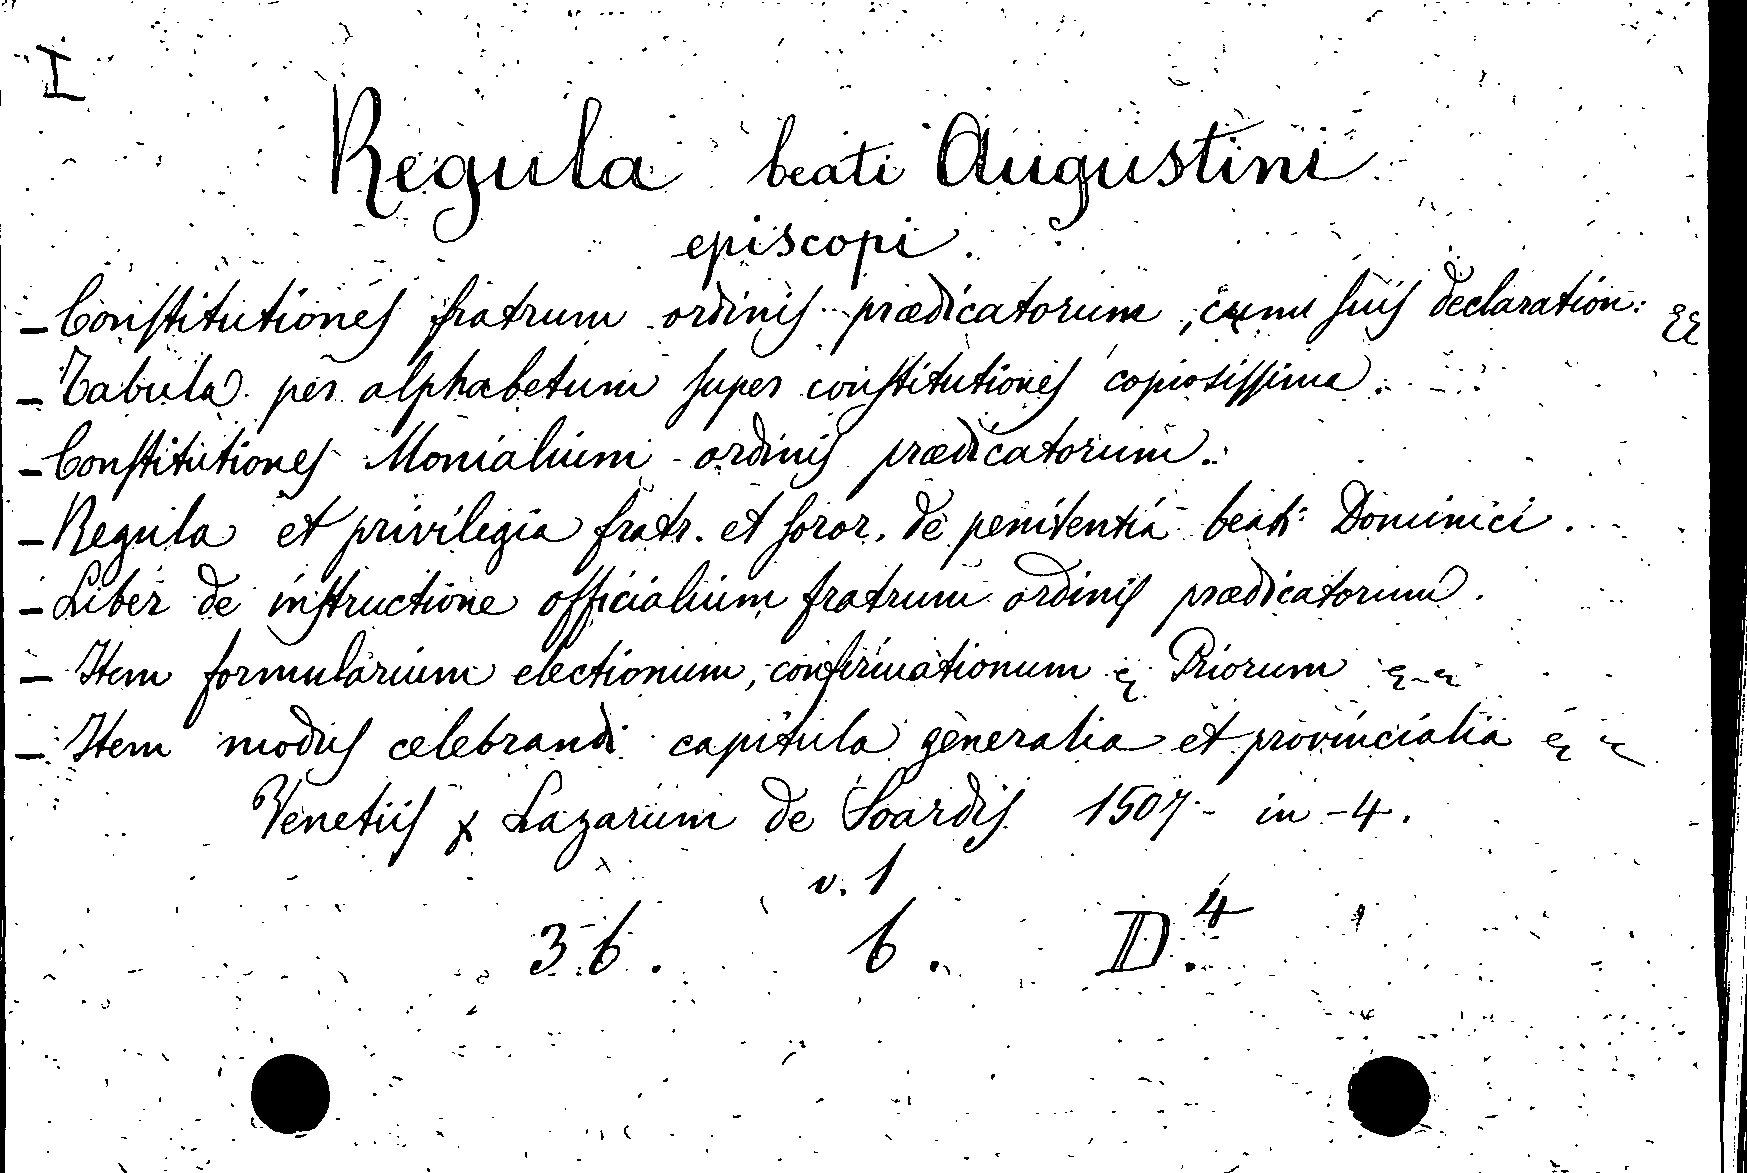 I
Regula beati Augustini
episcopi.
- Constitutiones fratrum ordinis prædicatorum, cum suis declaration:
- Tabula per alphabetum super constitutiones copiosissima.
- Constitutiones Monialium ordinis prædicatorum.
- Regula et privilegia fratr. et soror. de penitentia beati Dominici.
- Liber de instructione officialium fratrum ordinis prædicatorum.
- Item formularium electionum, confirmationum & Priorum
- Item modus celebrandi capitula generalia et provincialia
Venetiis Lazarum de Soardis 1507 - in-4.
v. 1
36. 6. D.4